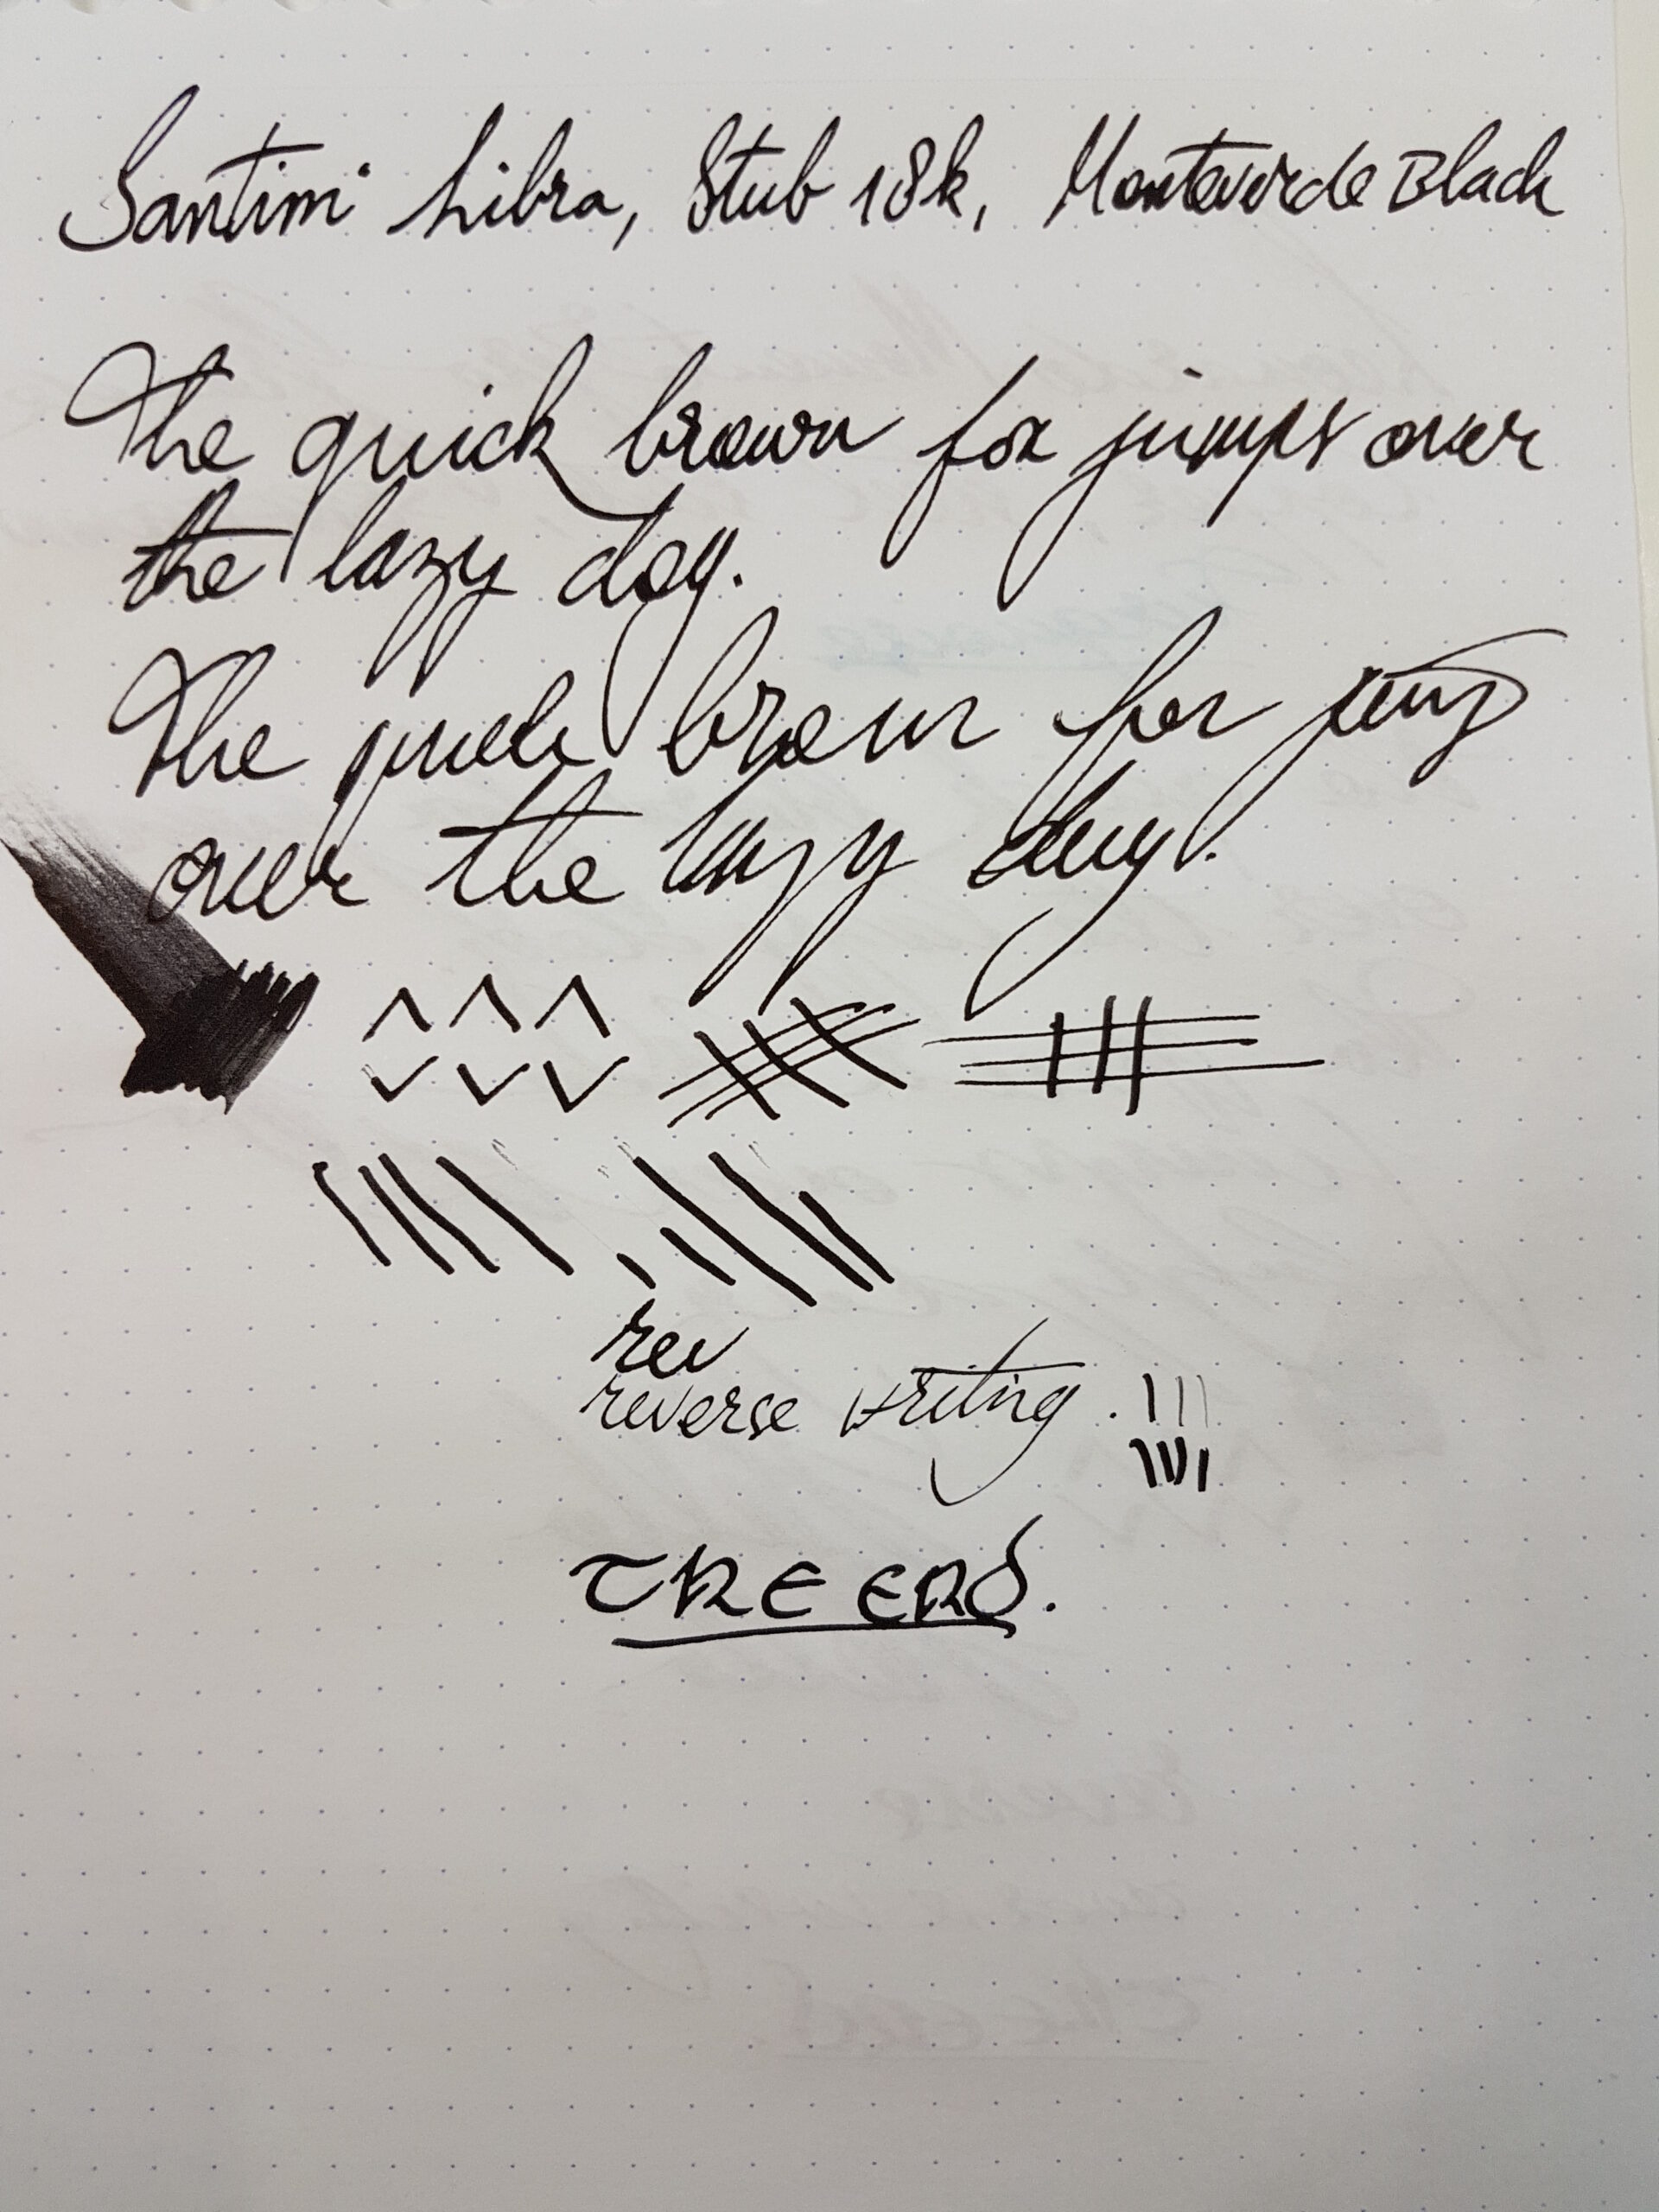 Santini Libra, Stub 18k, Monteverde Black
The quick brown fox jumps over
the lazy dog.
The quick brown fox jumps
over the lazy dog.
rev
reverse writing.
THE END.